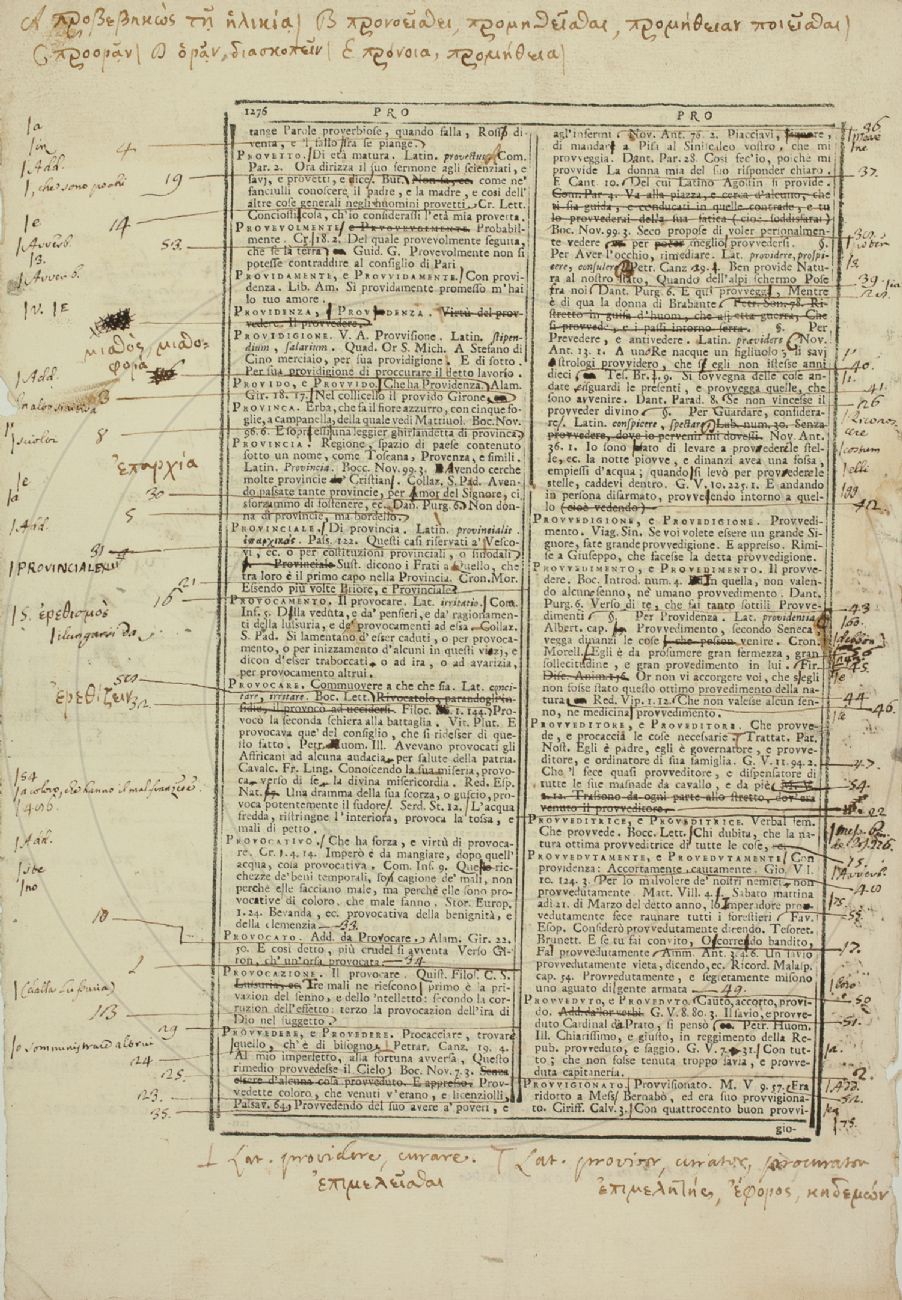 A προβεβηκὼς τῇ ἡλικίᾳ| B προνοεῖσθαι, προμηθεῖσθαι, προμήθειαν ποιεῖσθαι|
C προορᾷν| D ὁρᾷν, διασκοπεῖν| E πρόνοια, προμήθεια|
1276 PRO PRO
tange Parole proverbiose, quando falla, Rosso di
venta, e 'l fallo fra se piange.
PROVETTO. Di età matura. Latin. provectus. Com.
Par. 2. Ora dirizza il suo sermone agli scienziati, e
savj, e provetti, e dice. But. Non sa, ec. come ne'
fanciulli conoscere il padre, e la madre, e così dell'
altre cose generali negli huomini provetti. Cr. Lett.
Conciossiacosa, ch'io considerassi l'età mia provetta.
PROVEVOLMENTE, e PROVEVOLMENTE. Probabil-
mente. Cr. 18. 2. Del quale provevolmente seguita,
che se la terra Guid. G. Provevolmente non si
potesse contraddire al consiglio di Pari
PROVIDAMENTE, e PROVVIDAMENTE. Con provi-
denza. Lib. Am. Sì providamente promesso m'hai
lo tuo amore.
PROVIDENZA, PROVVIDENZA. Virtù del prov-
vedere. Il provvedere.
PROVIDIGIONE. V. A. Provvisione. Latin. stipen-
dium, salarium. Quad. Or S. Mich. A Stefano di
Cino merciaio, per sua providigione. E di sotto.
Per sua providigione di proccurare il detto lavorio.
PROVIDO, e PROVVIDO. Che ha Providenza. Alam.
Gir. 18. 17. Nel collicello il provido Girone
PROVINCA. Erba, che fa il fiore azzurro, con cinque fo-
glie, a campanella, della quale vedi Mattiuol. Boc. Nov.
96. 6. E sopr' essi una leggier ghirlandetta di provinca
PROVINCIA. Regione, spazio di paese contenuto
sotto un nome, come Toscana, Provenza, e simili.
Latin. Provincia. Bocc. Nov. 99. 3. Avendo cerche
molte provincie Cristian. Collaz. S. Pad. Aven-
do passate tante provincie, per Amor del Signore, ci
sforzammo di sostenere, ec. Dan. Purg. 6. Non don-
na di provincie, ma bordello.
PROVINCIALE. Di provincia. Latin. provincialis
ἐπαρχικός. Pass. 122. Questi casi riservati a' Vesco-
vi, ec. o per costituzioni provinciali, o sinodali
Provinciale Sust. dicono i Frati a Quello, che
tra loro è il primo capo nella Provincia. Cron. Mor.
Essendo più volte Priore, e Provinciale
PROVOCAMENTO. Il provocare. Lat. irritatio. Com.
Inf. 5. Della veduta, e da' pensieri, e da' ragionamen-
ti della lussuria, e de' provocamenti ad essa. Collaz.
S. Pad. Si lamentano d'esser caduti, o per provoca-
mento, o per inizzamento d'alcuni in questi vizj, e
dicon d'esser traboccati, o ad ira, o ad avarizia,
per provocamento altrui.
PROVOCARE. Commuovere a che che sia. Lat. conci-
tare, irritare. Boc. Lett. Provocatolo, parandogli in-
sidie, il provocò ad uccidersi. Filoc. 1. 144. Pro-
vocò la seconda schiera alla battaglia. Vit. Plut. E
provocava que' del consiglio, che si ridesser di que-
sto fatto. Petr. Huom. Ill. Avevano provocati gli
Affricani ad alcuna audacia, per salute della patria.
Cavalc. Fr. Ling. Conoscendo la sua miseria, provo-
ca, verso di se, la divina misericordia. Red. Esp.
Nat. Una dramma della sua scorza, o guscio, pro-
voca potentemente il sudore. Serd. St. 12. L'acqua
fredda, ristringne l'interiora, provoca la tossa, e
mali di petto.
PROVOCATIVO. Che ha forza, e virtù di provoca-
re. Cr. 1. 4. 14. Imperò è da mangiare, dopo quell'
acqua, cosa provocativa. Com. Inf. 9. Queste ric-
chezze de' beni temporali, son cagione de' mali, non
perchè elle facciano male, ma perchè elle sono pro-
vocative di coloro, che male fanno. Stor. Europ.
1. 24. Bevanda, ec. provocativa della benignità, e
della clemenzia 33.
PROVOCATO. Add. da Provocare. Alam. Gir. 22.
50. E così detto, più crudel si avventa Verso Gi-
ron, ch' un'orsa provocata 34
PROVOCAZIONE. Il provocare. Quist. Filos. C. S.
Lussuria, ec. Tre mali ne riescono primo è la pri-
vazion del senno, e dello 'ntelletto: secondo la cor-
ruzion dell'effetto: terzo la provocazion dell'ira di
Dio nel suggetto.
PROVVEDERE, e PROVEDERE. Procacciare, trovare
quello, ch'è di bisogno. Petrar. Canz. 19. 4.
Al mio imperfetto, alla fortuna avversa, Questo
rimedio provvedesse il Cielo Boc. Nov. 7. 3. Senza
essere d'alcuna cosa proveduto. E appresso. Prov-
vedette coloro, che venuti v'erano, e licenziolli,
Passav. 64. Provvedendo del suo avere a' poveri, e
agl'infermi. Nov. Ant. 76. 2. Piacciavi,
di mandare a Pisa al Siniscalco vostro, che mi
provveggia. Dant. Par. 28. Così fec'io, poichè mi
provvide La donna mia del suo risponder chiaro.
E Cant. 10. Del cui Latino Agostin si provide.
Com. Par. 4. Va alla piazza, e cerca d'alcuno, che
ti sia guida, e conducati in quelle contrade, e tu
lo provvederai della sua fatica (cioè soddisfarai)
Boc. Nov. 99. 3. Seco propose di voler personalmen-
te vedere per poter meglio provvedersi. §.
Per Aver l'occhio, rimediare. Lat. providere, prospi-
cere, consulere. Petr. Canz. 29. 4. Ben provide Natu-
ra al nostro stato, Quando dell'alpi schermo Pose
fra noi Dant. Purg. 6. E qui provveggi, Mentre
è di qua la donna di Brabante Petr. Son. 78. Ri-
stretto in guisa d'huom, che aspetta guerra, Che
si provvede, e i passi intorno serra. §. Per
Prevedere, e antivedere. Latin. prævidere. Nov.
Ant. 13. 1. A uno Re nacque un figliuolo li savj
Astrologi provvidero, che s' egli non istesse anni
dieci Tes. Br. 9. Si sovvegna delle cose an-
date, esguardi le presenti, e provvegga quelle, che
sono avvenire. Dant. Parad. 8. Se non vincesse il
provveder divino §. Per Guardare, considera-
re. Latin. conspicere, spectare. Lab. num. 30. Senza
provvedere, dove io pervenir mi dovessi. Nov. Ant.
36. 1. Io sono stato di levare a provvedere le stel-
le, ec. la notte piovve, e dinanzi avea una fossa,
empiessi d'acqua; quando si levò per provvedere le
stelle, caddevi dentro. G. V. 10. 225. 1. E andando
in persona disarmato, provvedendo intorno a quel-
lo (cioè vedendo) 42
PROVVEDIGIONE, e PROVEDIGIONE. Provvedi-
mento. Viag. Sin. Se voi volete essere un grande Si-
gnore, fate grande provvedigione. E appresso. Rimi-
se a Giuseppe, che facesse la detta provvedigione.
PROVVEDIMENTO, e PROVEDIMENTO. Il provve-
dere. Boc. Introd. num. 4. In quella, non valen-
do alcuno senno, nè umano provvedimento. Dant.
Purg. 6. Verso di te, che fai tanto sottili Provve-
dimenti §. Per Providenza. Lat. providentia
Albert. cap. Provvedimento, secondo Seneca
vegga dinanzi le cose che posson venire. Cron.
Morell. Egli è da prosumere gran fermezza, gran
sollecitudine, e gran provedimento in lui. Fir.
Disc. Anim. 126. Or non vi accorgete voi, che s'egli
non fosse stato questo ottimo provedimento della na-
tura, Red. Vip. 1. 12. Che non valesse alcun sen-
no, nè medicina provvedimento.
PROVVEDITORE, e PROVEDITORE. Che provve-
de, e procaccia le cose necessarie. Trattat. Pat.
Nost. Egli è padre, egli è governatore, e provve-
ditore, e ordinatore di sua famiglia. G. V. 11. 94. 2.
Che 'l fece quasi provveditore, e dispensatore di
tutte le sue masnade da cavallo, e da piè. M. V.
2. 12. Trassono da ogni parte allo stretto, dov'era
venuto il provveditore.
PROVVEDITRICE, e PROVEDITRICE. Verbal fem.
Che provvede. Bocc. Lett. Chi dubita, che la na-
tura ottima provveditrice di tutte le cose,
PROVVEDUTAMENTE, e PROVEDUTAMENTE. Con
providenza: Accortamente, cautamente. Gio. V. l.
10. 124. 3. Per lo malvolere de' nostri nemici, non
provvedutamente. Matt. Vill. 4. Sabato mattina
adì 21. di Marzo del detto anno, lo Imperidore pro-
vedutamente fece raunare tutti i forestieri Fav.
Esop. Considerò provvedutamente dicendo. Tesoret.
Brunett. E se tu fai convito, O correndo bandito,
Fal provvedutamente Amm. Ant. 3. 4. 6. Un savio
provvedutamente vieta, dicendo, ec. Ricord. Malasp.
cap. 54. Provvedutamente, e segretamente misono
uno aguato di gente armata 49.
PROVVEDUTO, e PROVEDUTO. Cauto, accorto, provi-
do. Add. da' lor verbi. G. V. 8. 80. 3. Il savio, e provve-
duto Cardinal da Prato, si pensò Petr. Huom.
Ill. Chiarissimo, e giusto, in reggimento della Re-
pub. proveduto, e saggio. G. V. 7. 31. Con tut-
to; che non fosse tenuta troppo savia, e provve-
duta capitaneria.
PROVVIGIONATO. Provvisionato. M. V. 9. 57. Fra
ridotto a Mess. Bernabò, ed era suo provvigiona-
to. Ciriff. Calv. 3. Con quattrocento buon provvi-
gio-
|a
|in
4
|Add.
19
|, che sono pochi
|e
14
|Avverb.
53.
|3.
|Avverb.
|V. |E
μισθὸς, μισθο-
φορά
|Add.
8
ἐπαρχία
30
|e
|a
5
|Add.
31
|PROVINCIALE
21
16
|5. ἐρεθισμὸς
ἐρεθίζειν
32.
|54
|Add.
|no
10
113
29
|o somministrare altrui
24
25.
23.
35.
36
37.
39
40.
41.
|elli
43
45.
44
46.
47.
54.
22
15.
|Avverb.
40
55.
17.
50
51.
|a.
52.
|Add.
⊥ Lat. providere, curare. T Lat. provisor, curator, procurator
ἐπιμελεῖσθαι ἐπιμελητὴς, ἔφορος, κηδεμών